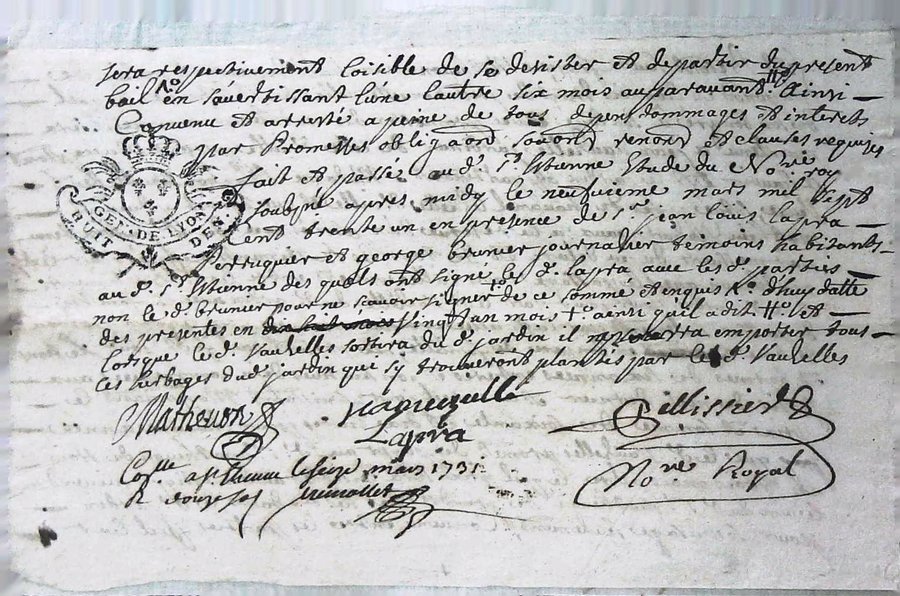 sera respectivement loisible de se desister et departir du present
bail N.o en s'avertissant l'une l'autre six mois auparavant H.o Ainsi
Convenu et arresté a peine de tous depens dommages et interets
par Promesses obliga.ons soub.ons renon.ons et clauses requises
fait et passé aud. S.t Etienne Etude du No.re roy
soubsné apres midy le neufvieme mars mil sept
Cent trente un en presence de s.r jean louis lapra
Perruquier et george brunier journalier temoins habitants
aud. S.t Etienne des quels ont signé le d. lapra avec les d. parties
non le d. brunier pour ne sçavoir signer de ce sommé et enquis N.o d'huy datte
des presentes en dix huit mois Vingt un mois t.o ainsi qu'il a dit H.o et
Lorsque le d. Vauzelles sortira du d. jardin il pourra emporter tous
les herbages dud. jardin que s'y trouveront plantés par le d. Vauzelles
Matheuon
Lapra
Pellissier
No.re Royal
Con.lle a St Etienne le seize mars 1731
R douze sols
GEN. DE LYON
HUIT DEN.